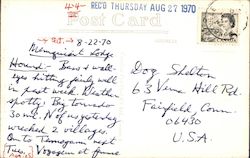 44
REC'D THURSDAY AUG 27 1970
Post Card
8-22-70
Memquisit Lodge
Hound: Bass & wall-
eyes hitting fairly well
in past week. Weather
spotty. Big tornado
30 mi. N of us yesterday
wrecked 2 villages.
On to Timagami next
Tues.
Doz Shelton
63 Verne Hill Rd.
Fairfield, Conn.
06430
U.S.A.